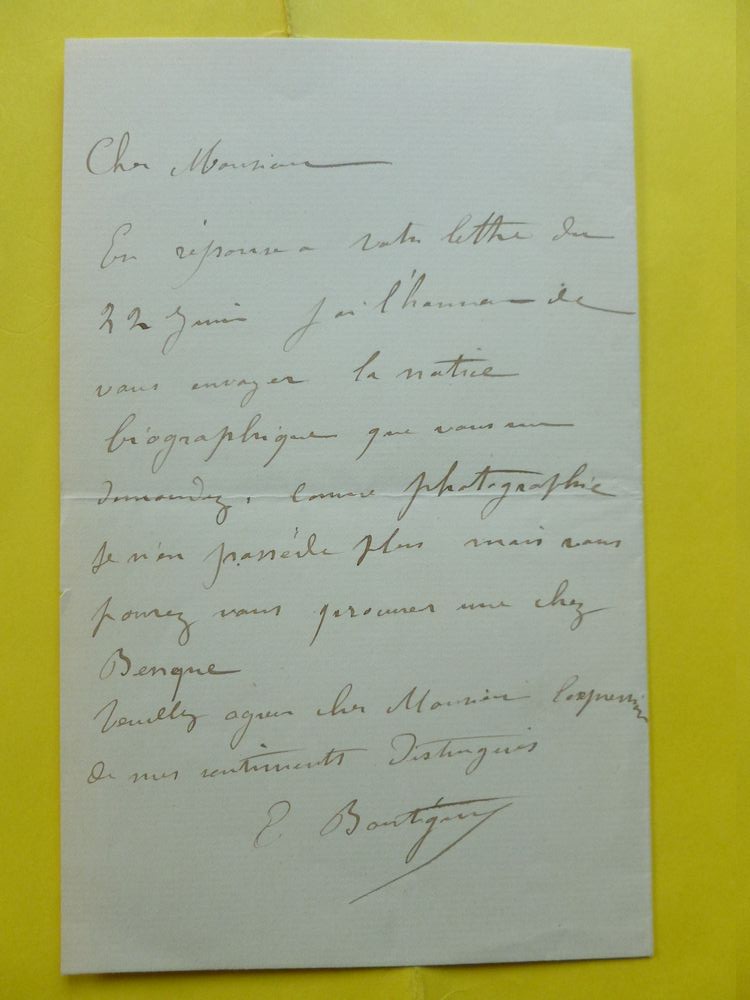 Cher Monsieur
En réponse a votre lettre du
22 Juin j'ai l'honneur de
vous envoyer la notice
biographique que vous me
demandez, comme photographie
je n'en possède plus mais vous
pourez vous procurer une chez
Benque
Veuillez agreer cher Monsieur l'expression
de mes sentiments Distingués
E. Boutigny